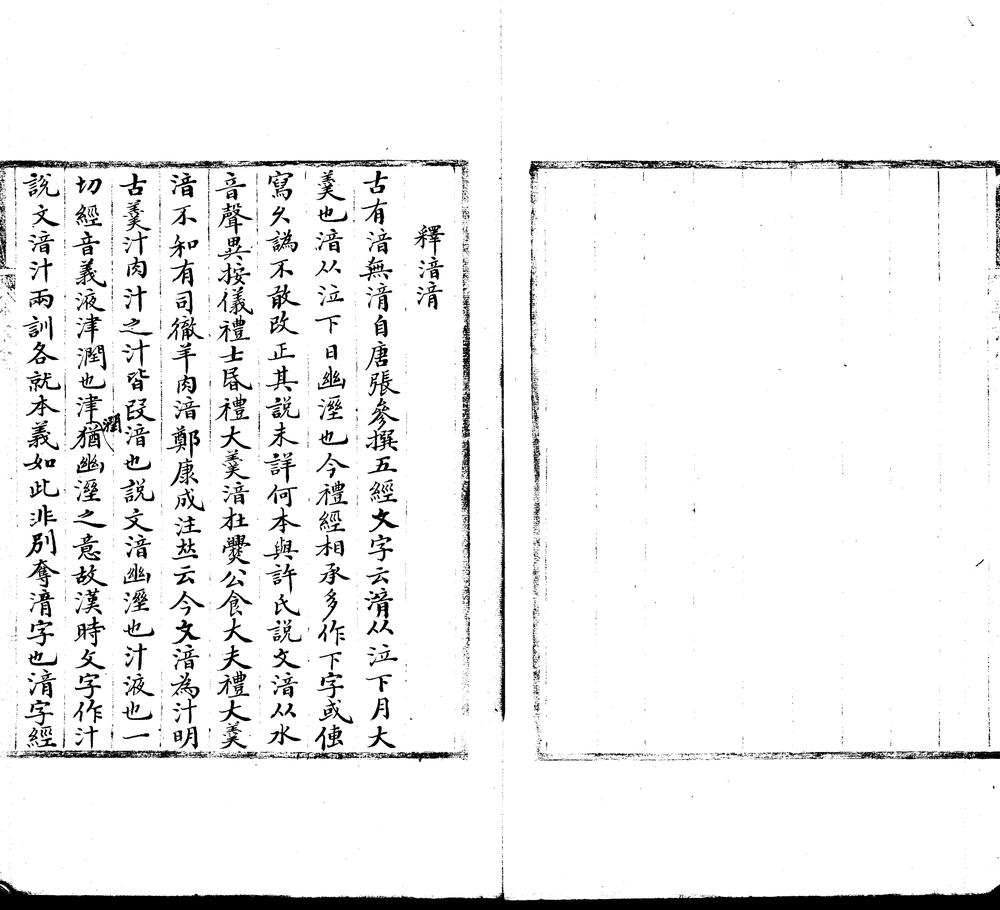 釋湆湇
古有湆無湇自唐張參撰五經文字云湇从泣下月大
羹也湆从泣下日幽溼也今禮經相承多作下字或傳
寫久譌不敢改正其説未詳何本與許氏説文湆从水
音聲異按儀禮士昬禮大羹湆在爨公食大夫禮大羹
湆不和有司徹羊肉湆鄭康成注竝云今文湆為汁明
古羹汁肉汁之汁皆叚湆也説文湆幽溼也汁液也一
切經音義液津潤也津潤猶幽溼之意故漢時文字作汁
説文湆汁兩訓各就本義如此非別奪湇字也湇字經